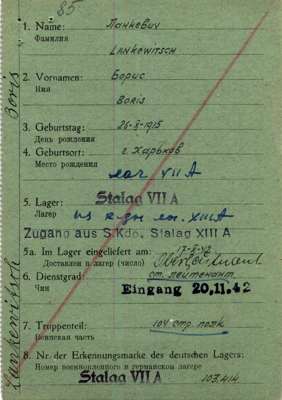 85
1. Name: Панкевич
Фамилия
Lankewitsch
2. Vornamen: Борис
Имя
Boris
3. Geburtstag: 26-II-1915
День рождения
4. Geburtsort: г. Харьков
Место рождения
лаг VII A
Stalag VII A
5. Lager:
Лагерь
из лаг. XIII A
Zugang aus S.Kdo. Stalag XIII A
5a. Im Lager eingeliefert am:
Доставлен в лагерь (число) Oberleutnant
6. Dienstgrad: ст. лейтенант
Чин
Eingang 20.11.42
7. Truppenteil: 104 стр. полк
Воинская часть
8. Nr. der Erkennungsmarke des deutschen Lagers:
Номер военнопленного в германском лагере
Stalag VII A 103414
Lankewitsch Boris